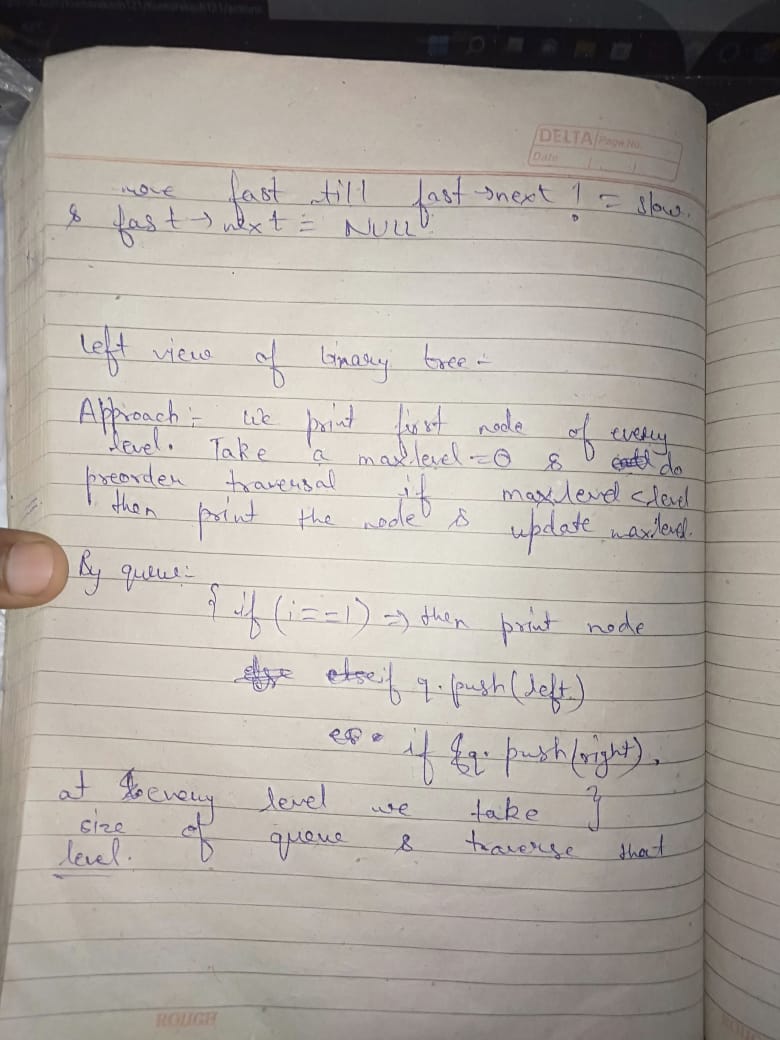 DELTA Page No.
Date
move fast till fast → next != slow.
& fast → next = NULL
left view of binary tree :-
Approach :- we print first node of every
level. Take a maxlevel = 0 & do
preorder traversal if maxlevel < level
then print the node & update maxlevel.
By queue :-
{ if (i==1) => then print node
if q.push(left)
if q.push(right),
at every level we take }
size of queue & traverse that
level.
ROUGH